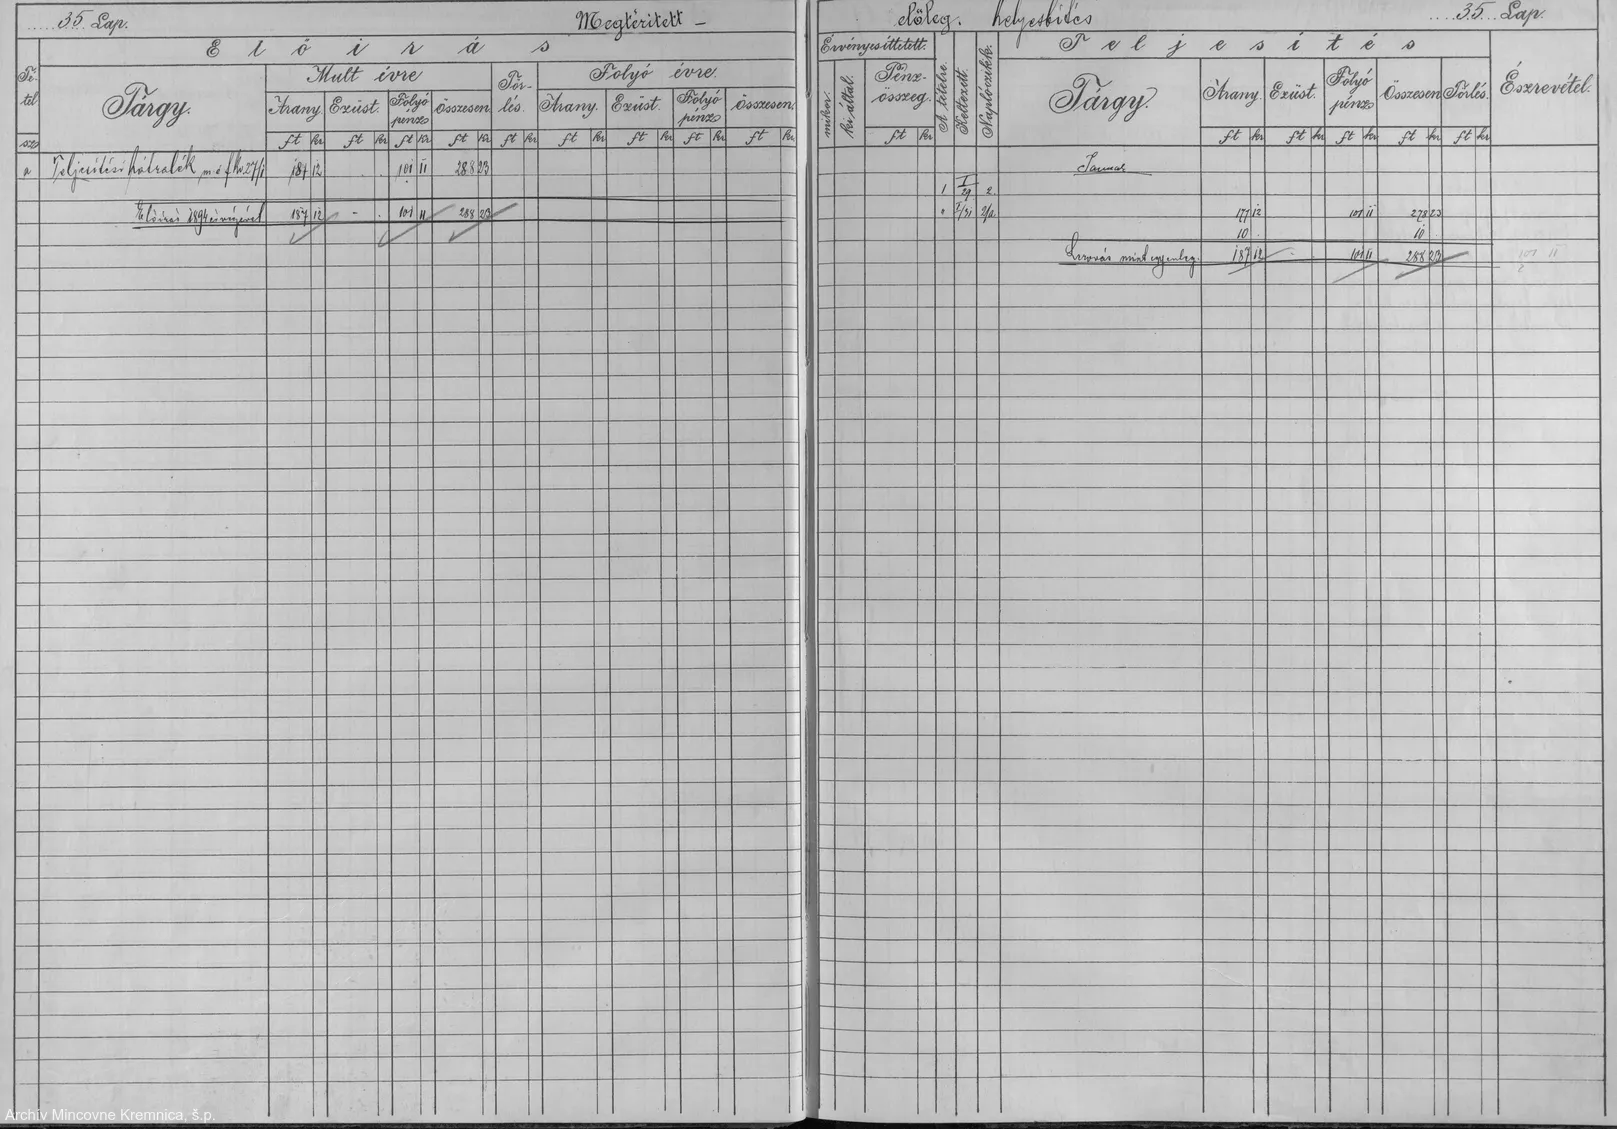 35. Lap.
Megtérített –
Előirás
Té-
tel
sz
Tárgy.
Mult évre
Arany.
Ezüst.
Folyó
pénz
Összesen.
Tör-
lés.
Folyó évre.
Arany.
Ezüst.
Folyó
pénz
Összesen.
ft kr ft kr ft kr ft kr ft kr ft kr ft kr ft kr ft kr
a Teljesitési hátralék 187 12 . . 101 11 288 23
Előirás 1894 év végével 187 12 - . 101 11 288 23
előleg. helyesbítés
35. Lap.
Érvényesíttetett.
mikor.
ki által.
Pénz-
összeg.
A tételre.
Keltezett.
Naplózikk.
Teljesítés
Tárgy.
Arany.
Ezüst.
Folyó
pénz
Összesen
Törlés.
Észrevétel.
ft kr ft kr ft kr ft kr ft kr ft kr
Január
1 I/29 2.
" I/31 2/a. 177 12 101 11 278 23
10 . 10 .
Lerovás mint egyenleg. 187 12 - . 101 11 288 23
101 11
Archív Mincovne Kremnica, š.p.